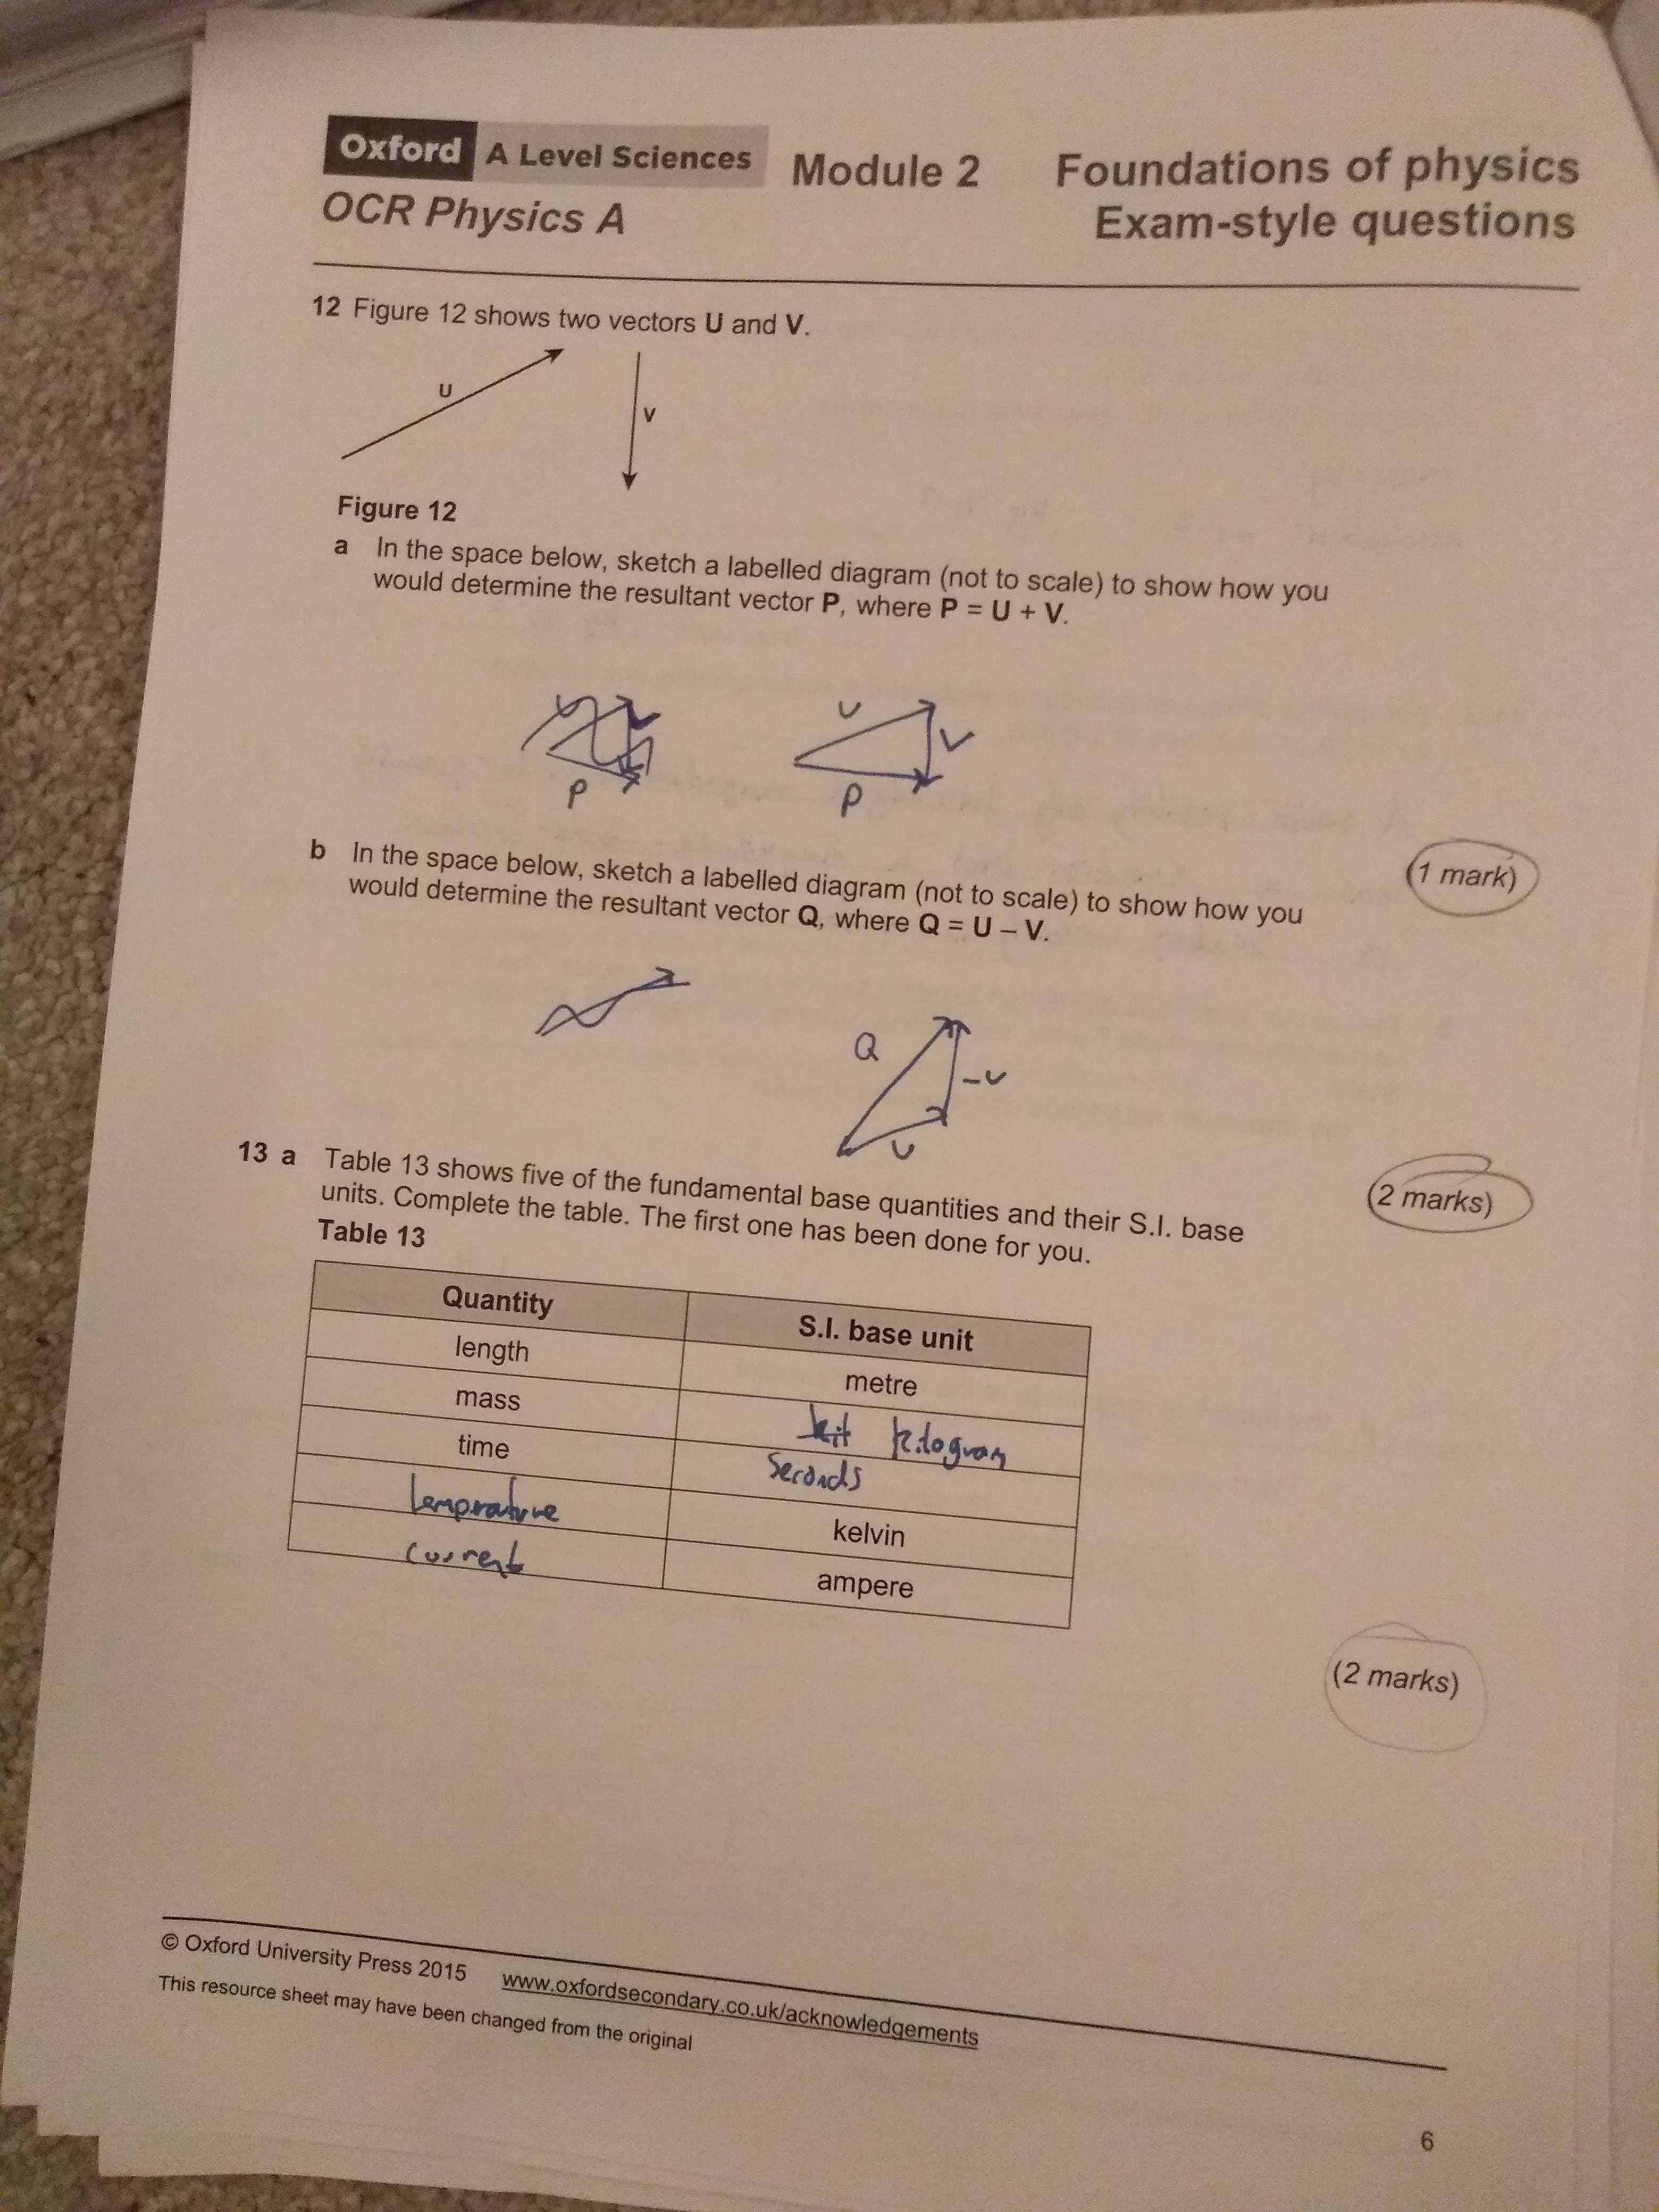 Oxford A Level Sciences Module 2 Foundations of physics
OCR Physics A Exam-style questions
12 Figure 12 shows two vectors U and V.
U
V
Figure 12
a In the space below, sketch a labelled diagram (not to scale) to show how you
would determine the resultant vector P, where P = U + V.
U V
P
U V
P
(1 mark)
b In the space below, sketch a labelled diagram (not to scale) to show how you
would determine the resultant vector Q, where Q = U – V.
Q
-V
U
(2 marks)
13 a Table 13 shows five of the fundamental base quantities and their S.I. base
units. Complete the table. The first one has been done for you.
Table 13
Quantity S.I. base unit
length metre
mass kilogram
time Seconds
temprature kelvin
current ampere
(2 marks)
© Oxford University Press 2015 www.oxfordsecondary.co.uk/acknowledgements
This resource sheet may have been changed from the original
6